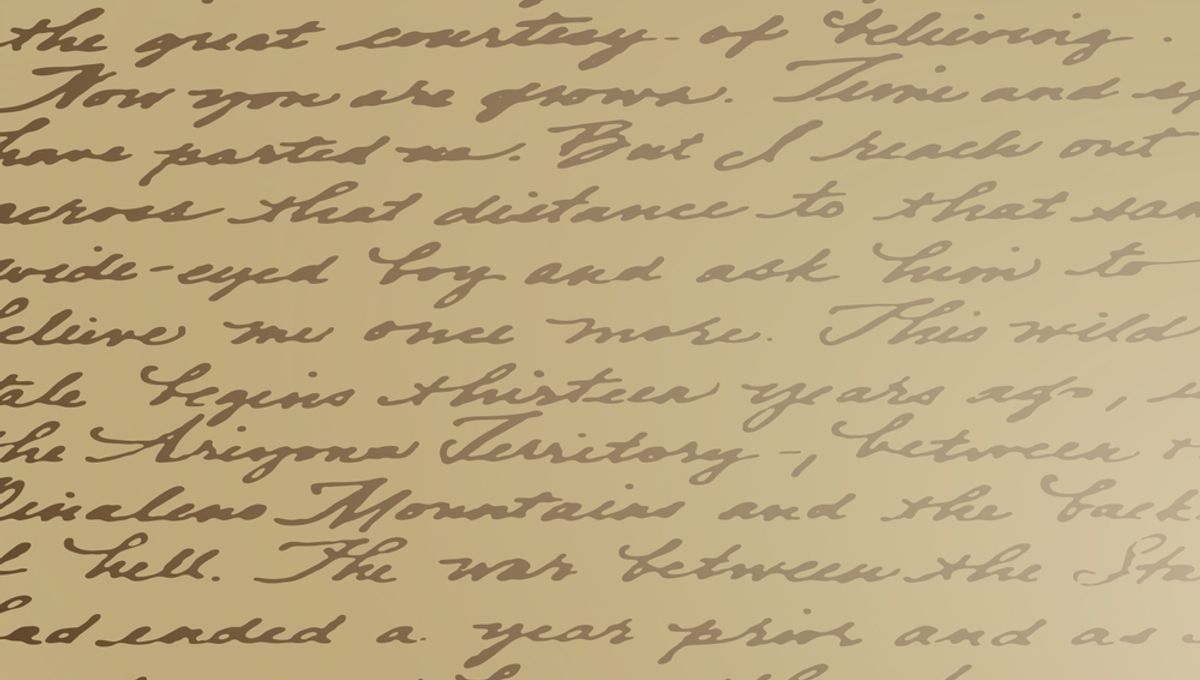 the great courtesy - of believing.
Now you are grown. Time and
have parted me. But I reach out
across that distance to that
wide-eyed boy and ask him to
believe me once more. This wild
tale begins thirteen years ago,
the Arizona Territory -, between
Pinaleno Mountains and the back
hell. The war between the Sta
had ended a year prior and as